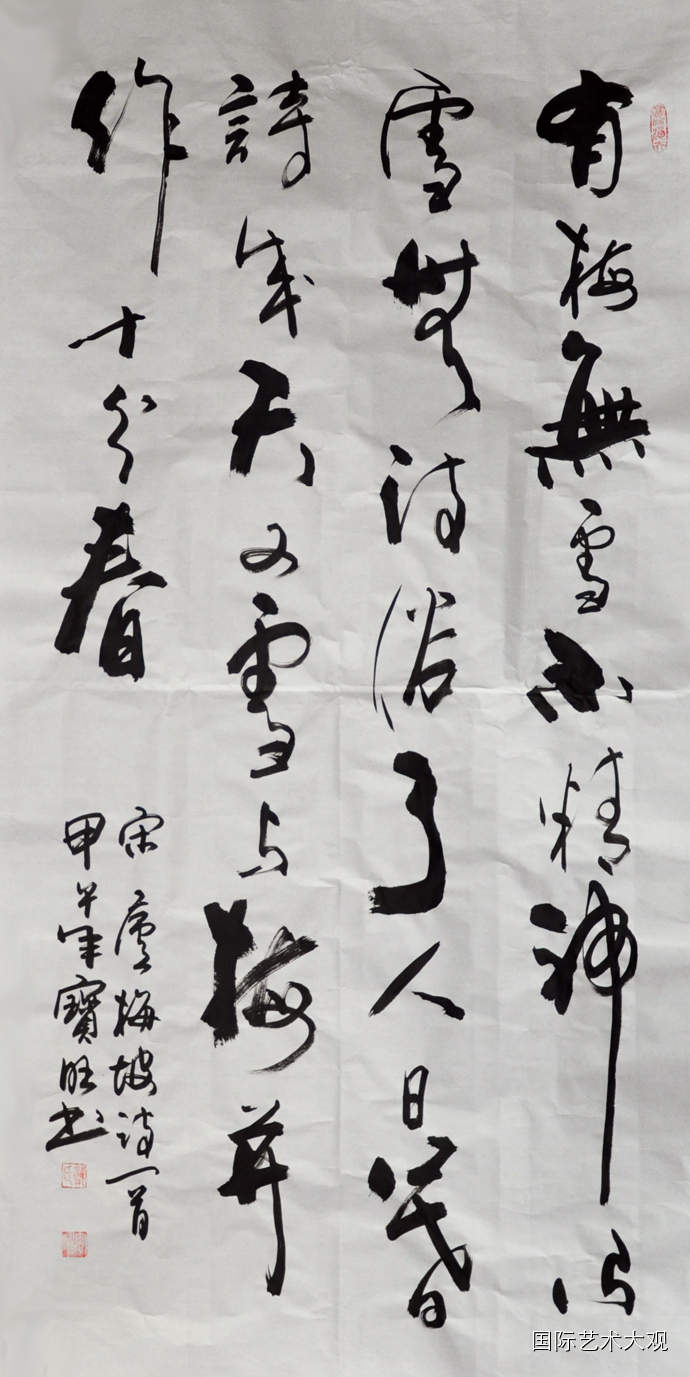 有梅無雪不精神有
雪無诗俗了人日暮
詩成天又雪与梅并
作十分春
宋盧梅坡诗一首
甲午年寶旺书
国际艺术大观